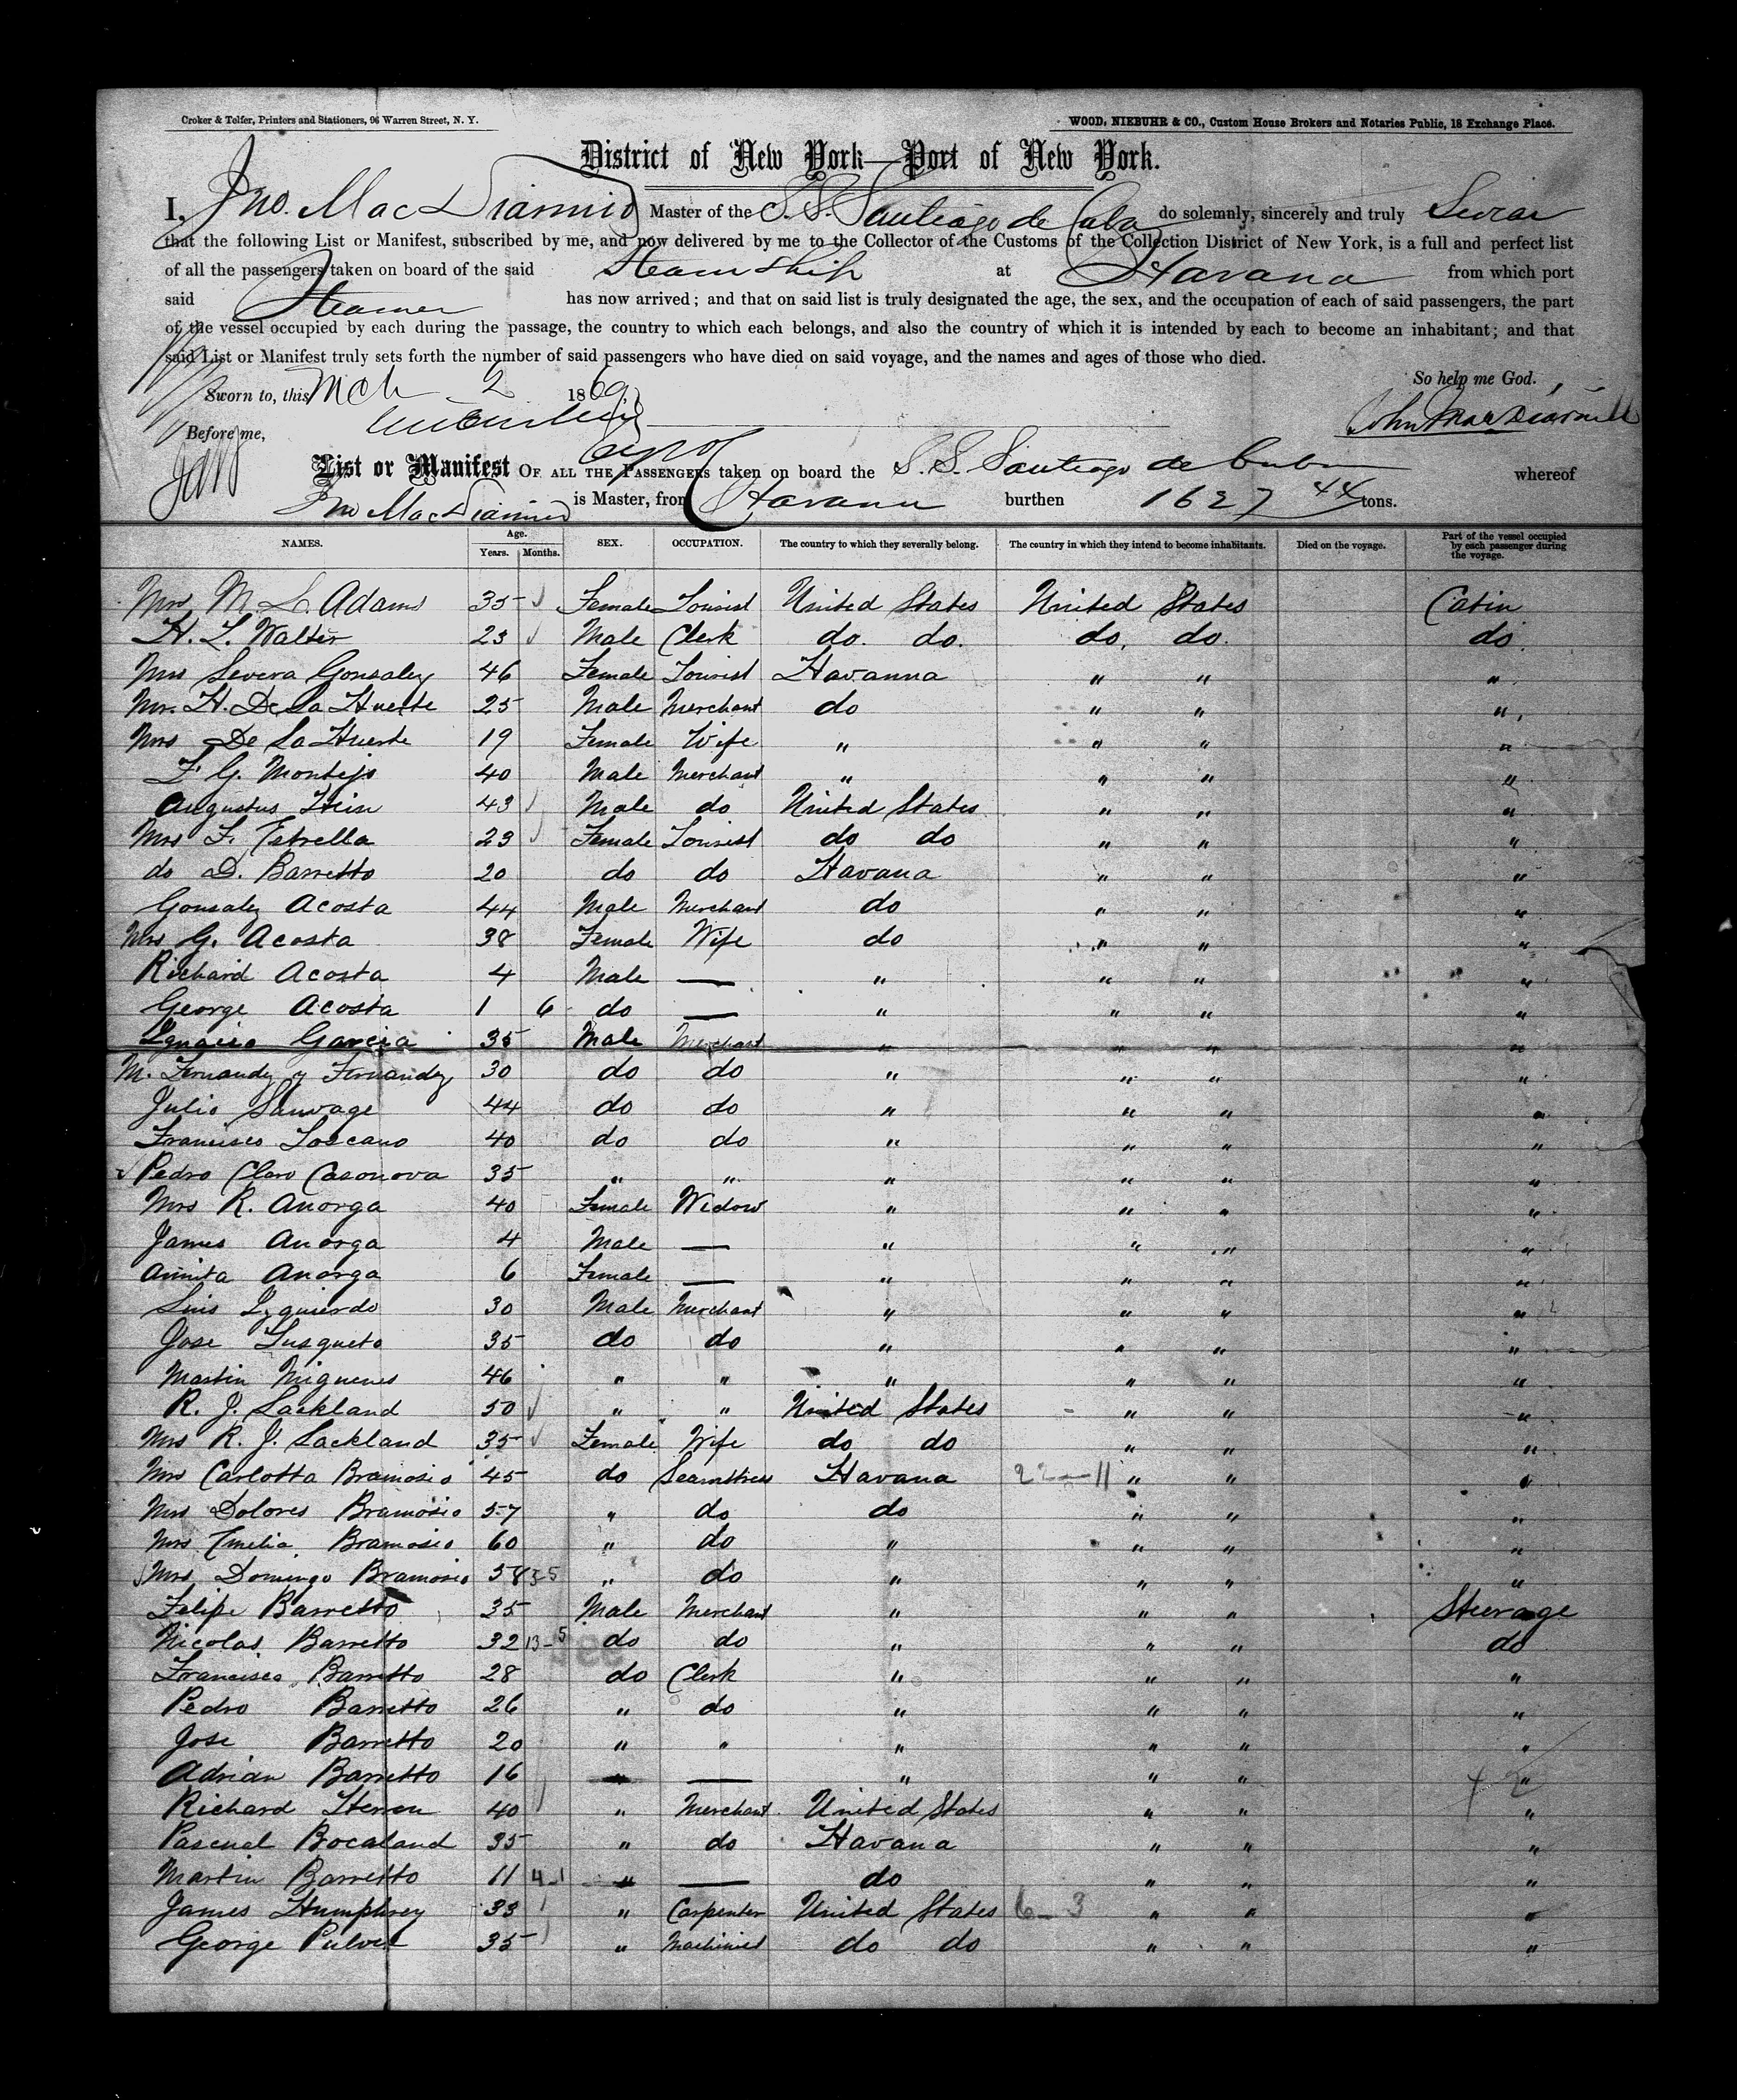 Croker & Telfer, Printers and Stationers, 96 Warren Street, N. Y.
WOOD, NIEBUHR & CO., Custom House Brokers and Notaries Public, 18 Exchange Place.
District of New York—Port of New York.
I, Jno. MacDiarmid Master of the S.S. Santiago de Cuba do solemnly, sincerely and truly Swear
that the following List or Manifest, subscribed by me, and now delivered by me to the Collector of the Customs of the Collection District of New York, is a full and perfect list
of all the passengers taken on board of the said Steam Ship at Havana from which port
said Steamer has now arrived; and that on said list is truly designated the age, the sex, and the occupation of each of said passengers, the part
of the vessel occupied by each during the passage, the country to which each belongs, and also the country of which it is intended by each to become an inhabitant; and that
said List or Manifest truly sets forth the number of said passengers who have died on said voyage, and the names and ages of those who died.
So help me God.
Sworn to, this Mch 2 1869
John MacDiarmid
Before me,
List or Manifest OF ALL THE PASSENGERS taken on board the S. S. Santiago de Cuba whereof
Jno MacDiarmid is Master, from Havana burthen 1627 44 tons.
NAMES. Age. Years. Months. SEX. OCCUPATION. The country to which they severally belong. The country in which they intend to become inhabitants. Died on the voyage. Part of the vessel occupied by each passenger during the voyage.
Mrs M. L. Adams 35 Female Tourist United States United States Cabin
H. L. Walter 23 Male Clerk do. do. do. do. do.
Mrs Severa Gonsalez 46 Female Tourist Havanna " " "
Mr. H. De La Huerte 25 Male Merchant do " " "
Mrs De La Huerte 19 Female Wife " " " "
F. G. Montejo 40 Male Merchant " " " "
Augustus Hein 43 Male do United States " " "
Mrs F. Estrella 23 Female Tourist do do " " "
do D. Barretto 20 do do Havana " " "
Gonsalez Acosta 44 Male Merchant do " " "
Mrs G. Acosta 38 Female Wife do " " "
Richard Acosta 4 Male — " " " "
George Acosta 1 6 do — " " " "
Ignacio Garcia 35 Male Merchant " " " "
M. Fernandez y Fernandez 30 do do " " " "
Julio Sauvage 44 do do " " " "
Francisco Toscano 40 do do " " " "
Pedro Claro Casonova 35 " " " " " "
Mrs R. Anorga 40 Female Widow " " " "
James Anorga 4 Male — " " " "
Annita Anorga 6 Female — " " " "
Luis Izquierdo 30 Male Merchant " " " "
Jose Susqueto 35 do do " " " "
Martin Miguenes 46 " " " " " "
R. J. Lackland 50 " " United States " " "
Mrs R. J. Lackland 35 Female Wife do do " " "
Mrs Carlotta Bramosio 45 do Seamstress Havana 22—11 " " "
Mrs Dolores Bramosio 57 " do do " " "
Mrs Emelia Bramosio 60 " do " " " "
Mrs Domingo Bramosio 38 3-5 " do " " " "
Felipe Barretto 35 Male Merchant " " " Steerage
Nicolas Barretto 32 13-5 do do " " " do
Francisco Barretto 28 do Clerk " " " "
Pedro Barretto 26 " do " " " "
Jose Barretto 20 " " " " " "
Adrian Barretto 16 " — " " " "
Richard Herren 40 " Merchant United States " " "
Pascual Bocaland 35 " do Havana " " "
Martin Barretto 11 4-1 " — do " " "
James Humphrey 33 " Carpenter United States 6-3 " " "
George Pulver 35 " Machinist do do " " "